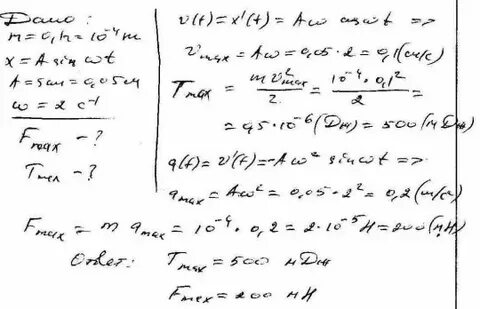 Дано:
m = 0,1г = 10⁻⁴ м
x = A sin ωt
A = 5см = 0,05 м
ω = 2 с⁻¹
Fmax - ?
Tmax - ?
v(t) = x'(t) = Aω cos ωt =>
vmax = Aω = 0,05 · 2 = 0,1 (м/с)
Tmax = mv²max/2 = 10⁻⁴ · 0,1²/2 =
= 0,5 · 10⁻⁶ (Дж) = 500 (нДж)
a(t) = v'(t) = -Aω² sin ωt =>
amax = Aω² = 0,05 · 2² = 0,2 (м/с²)
Fmax = m amax = 10⁻⁴ · 0,2 = 2·10⁻⁵ Н = 200 (мН)
Ответ: Tmax = 500 нДж
Fmax = 200 мН